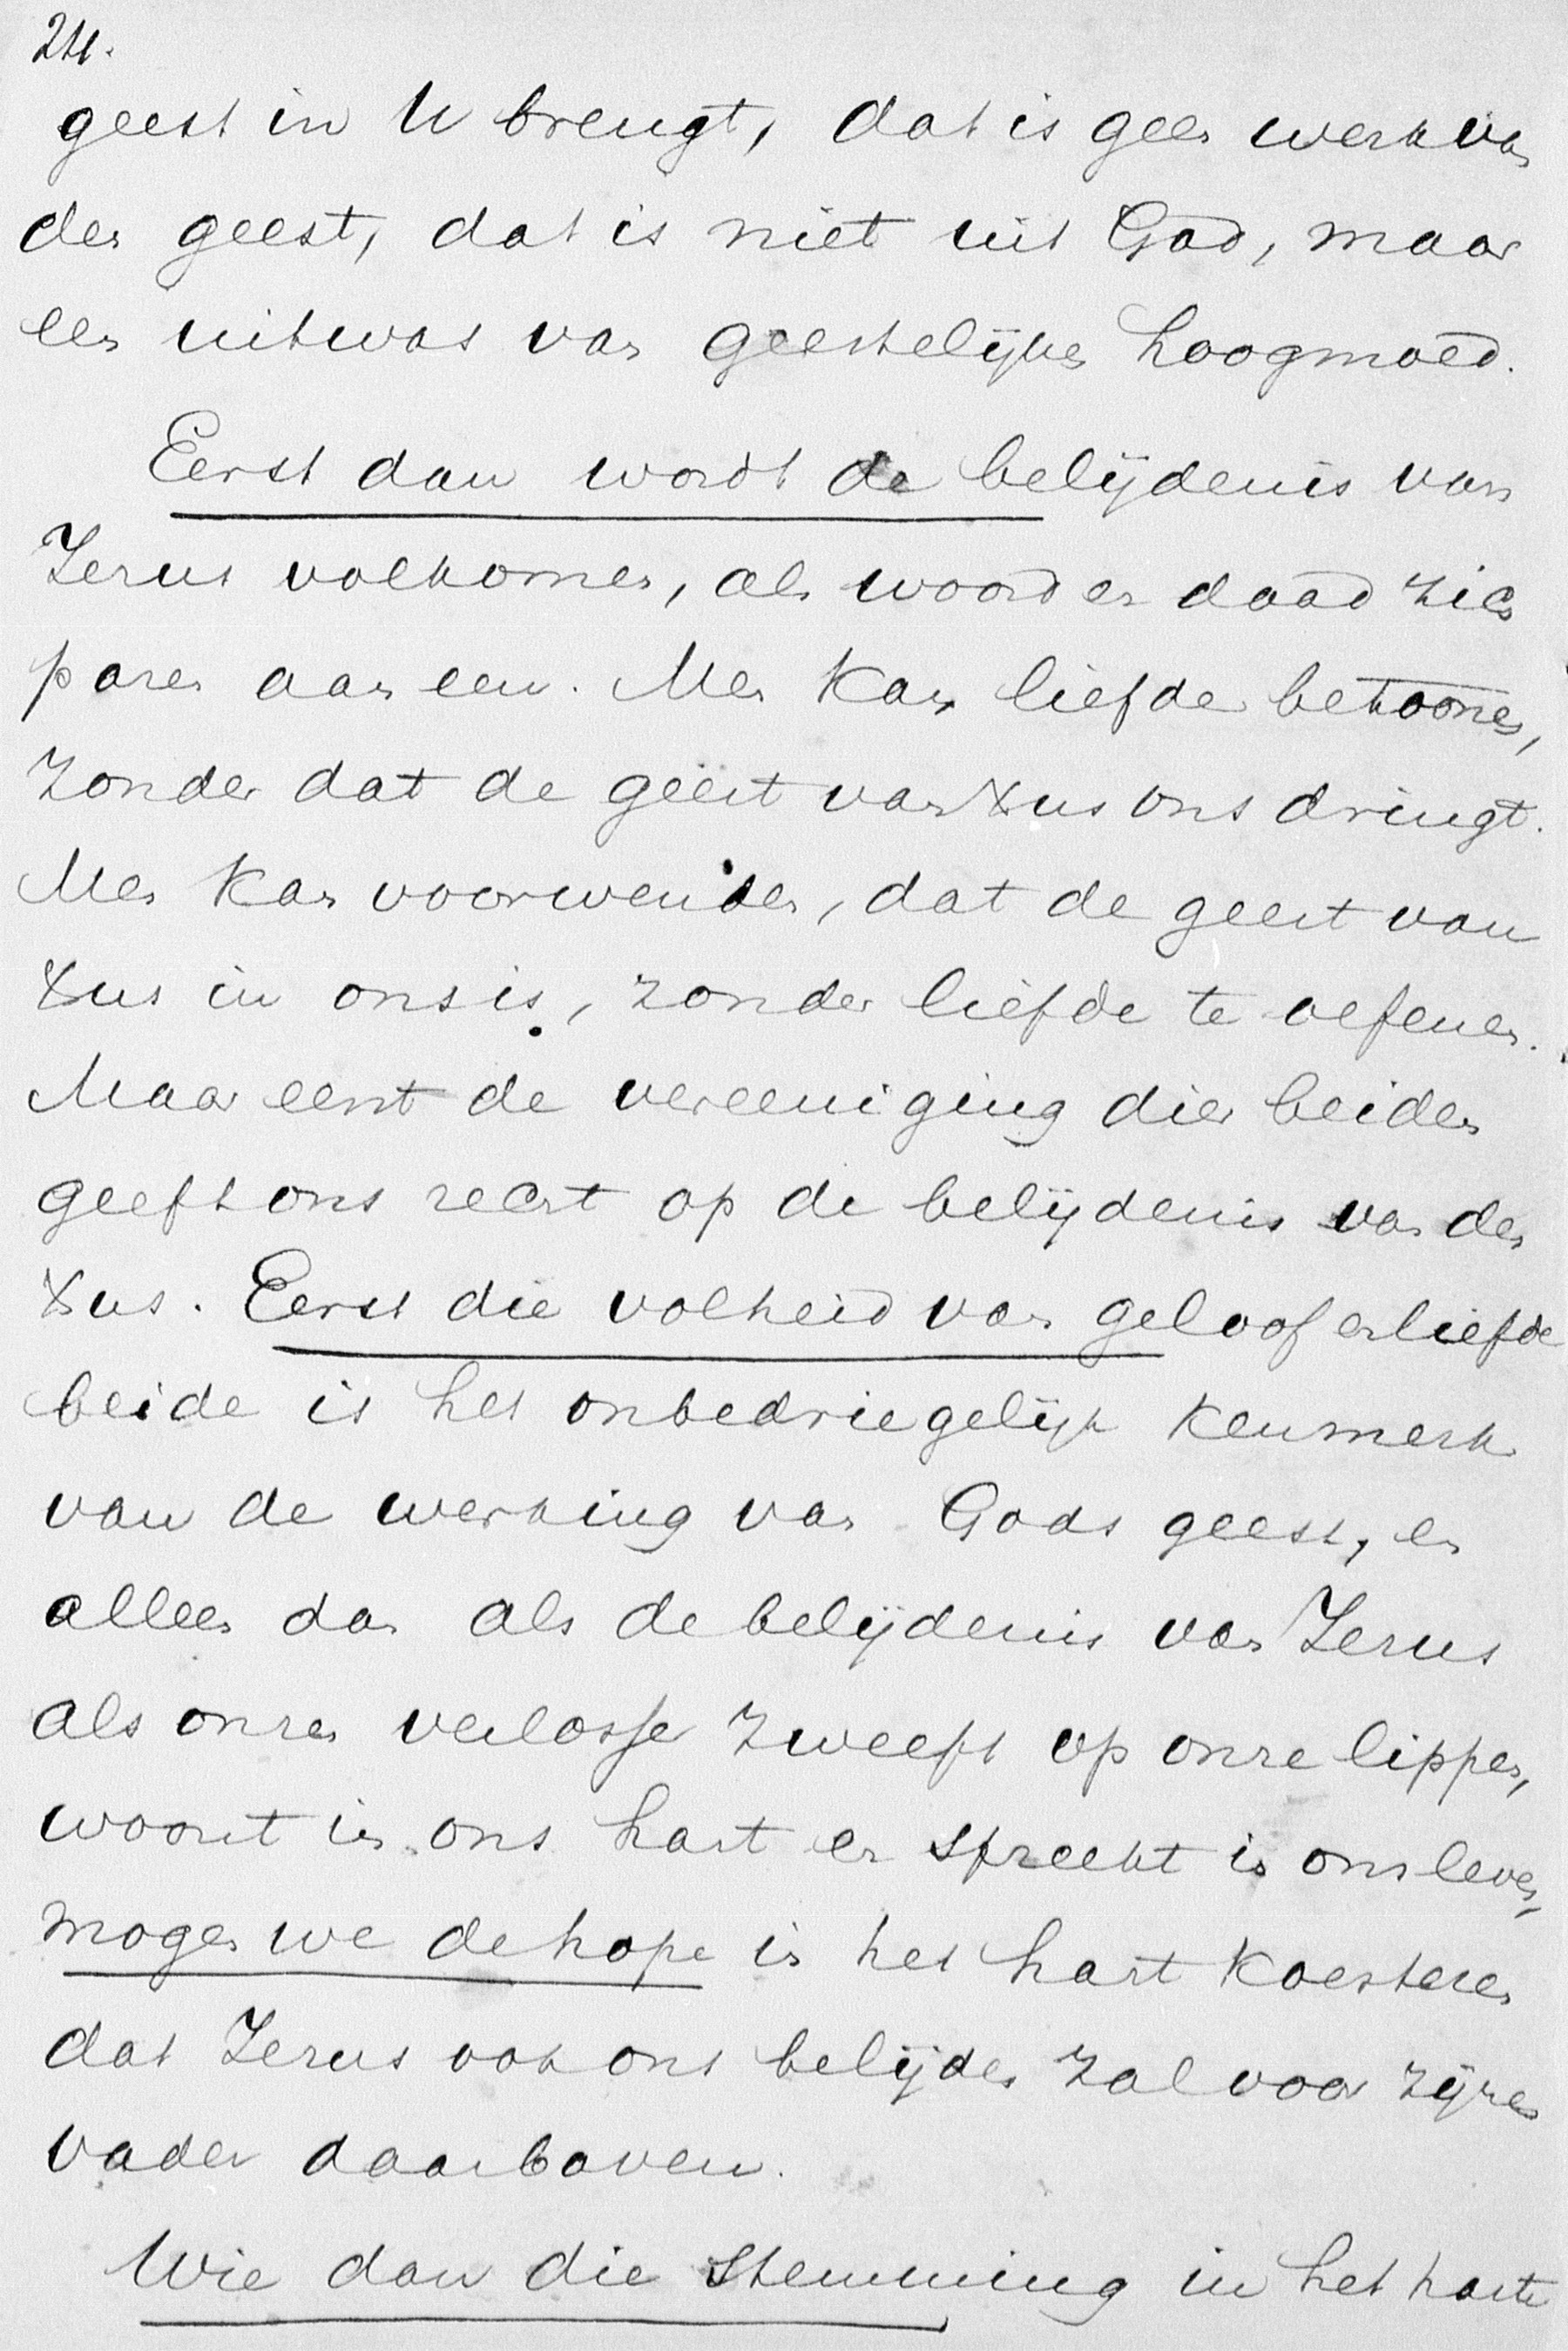 24.
geest in U brengt, dat is geen werk van
den geest, dat is niet uit God, maar
een uitwas van geestelijken hoogmoed.
Eerst dan wordt de belijdenis van
Jezus volkomen, als woord en daad zich
paren aaneen. Men kan liefde betoonen,
zonder dat de geest van Xus ons dringt.
Men kan voorwenden, dat de geest van
Xus in ons is, zonder liefde te oefenen.
Maar eerst de vereeniging dier beiden
geeft ons recht op de belijdenis van den
Xus. Eerst die volheid van geloof en liefde
beide is het onbedriegelijk kenmerk
van de werking van Gods geest, en
alleen dan als de belijdenis van Jezus
als onzen verlosser zweeft op onze lippen,
woont in ons hart en spreekt in ons leven,
mogen we de hope in het hart koesteren
dat Jezus ook ons belijden zal voor zijnen
vader daarboven.
Wie dan die stemming in het harte